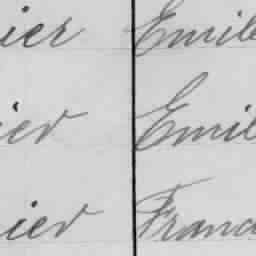 ier Emile
ier Emil
ier Franc